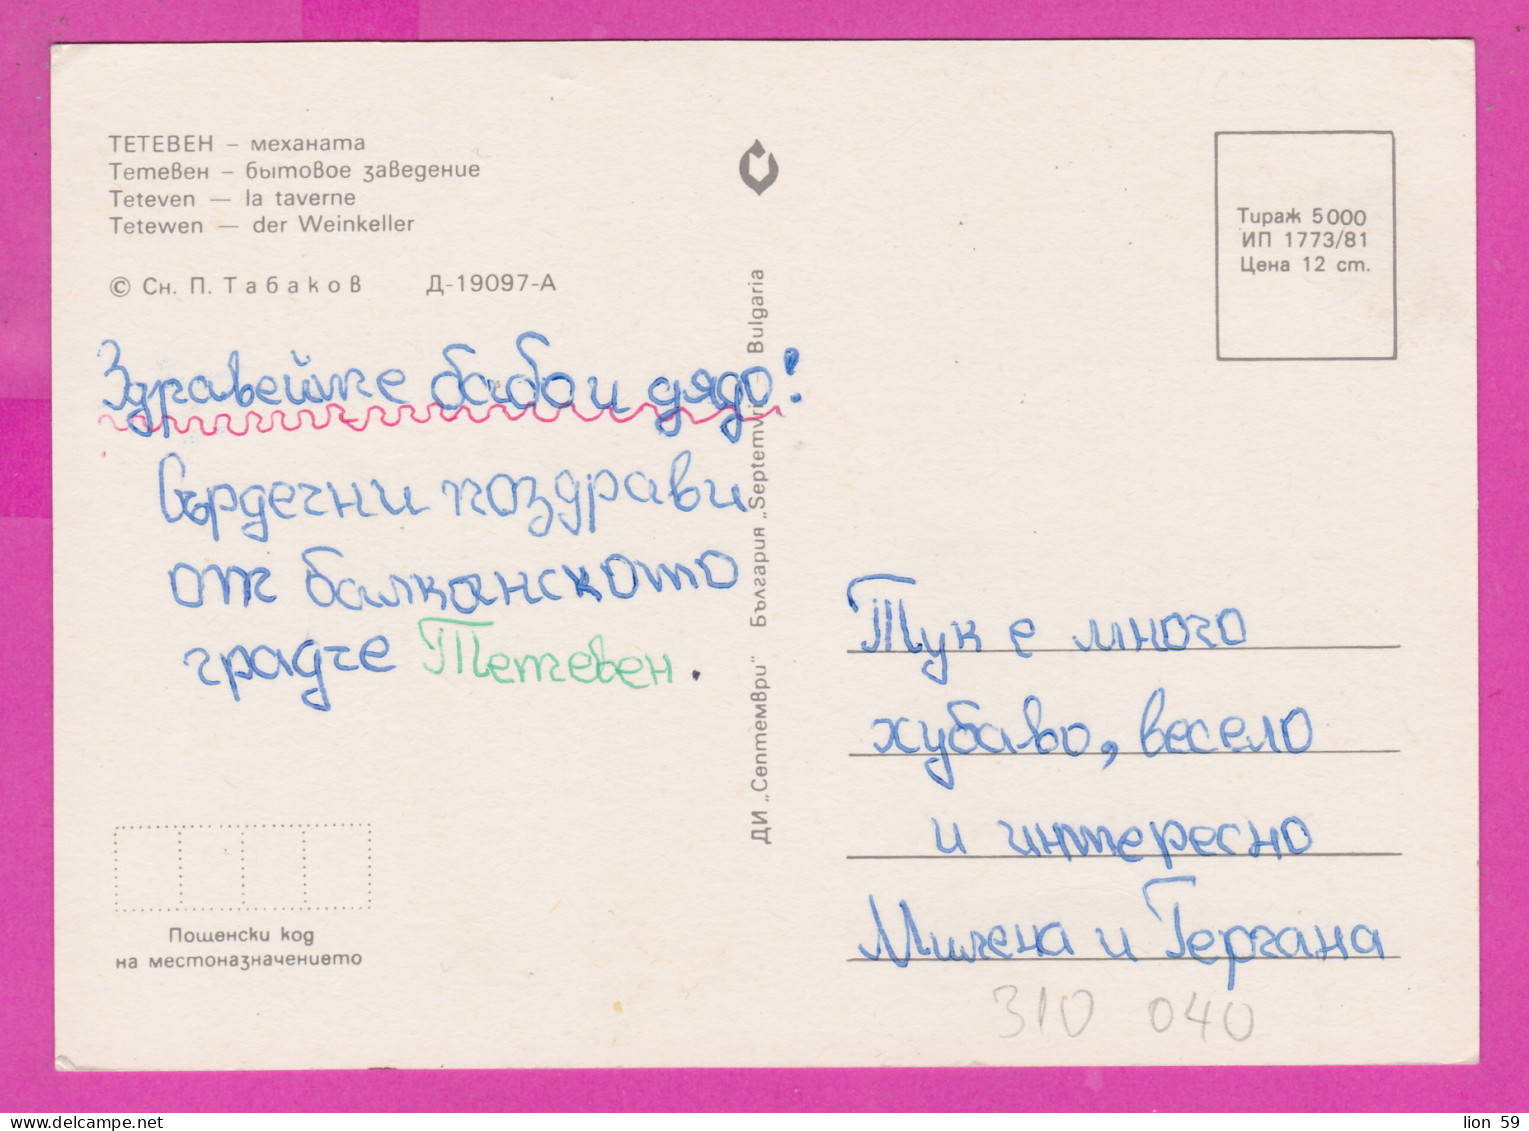 ТЕТЕВЕН – механата
Тетевен – бытовое заведение
Teteven — la taverne
Tetewen — der Weinkeller
© Сн. П. Табаков Д-19097-А
Здравейте бабо и дядо!
Сърдечни поздрави
от балканското
градче Тетевен.
Пощенски код
на местоназначението
ДИ „Септември“ България „Septemvri“ – Bulgaria
Тираж 5000
ИП 1773/81
Цена 12 ст.
Тук е много
хубаво, весело
и интересно
Милена и Гергана
310 040
lion 59